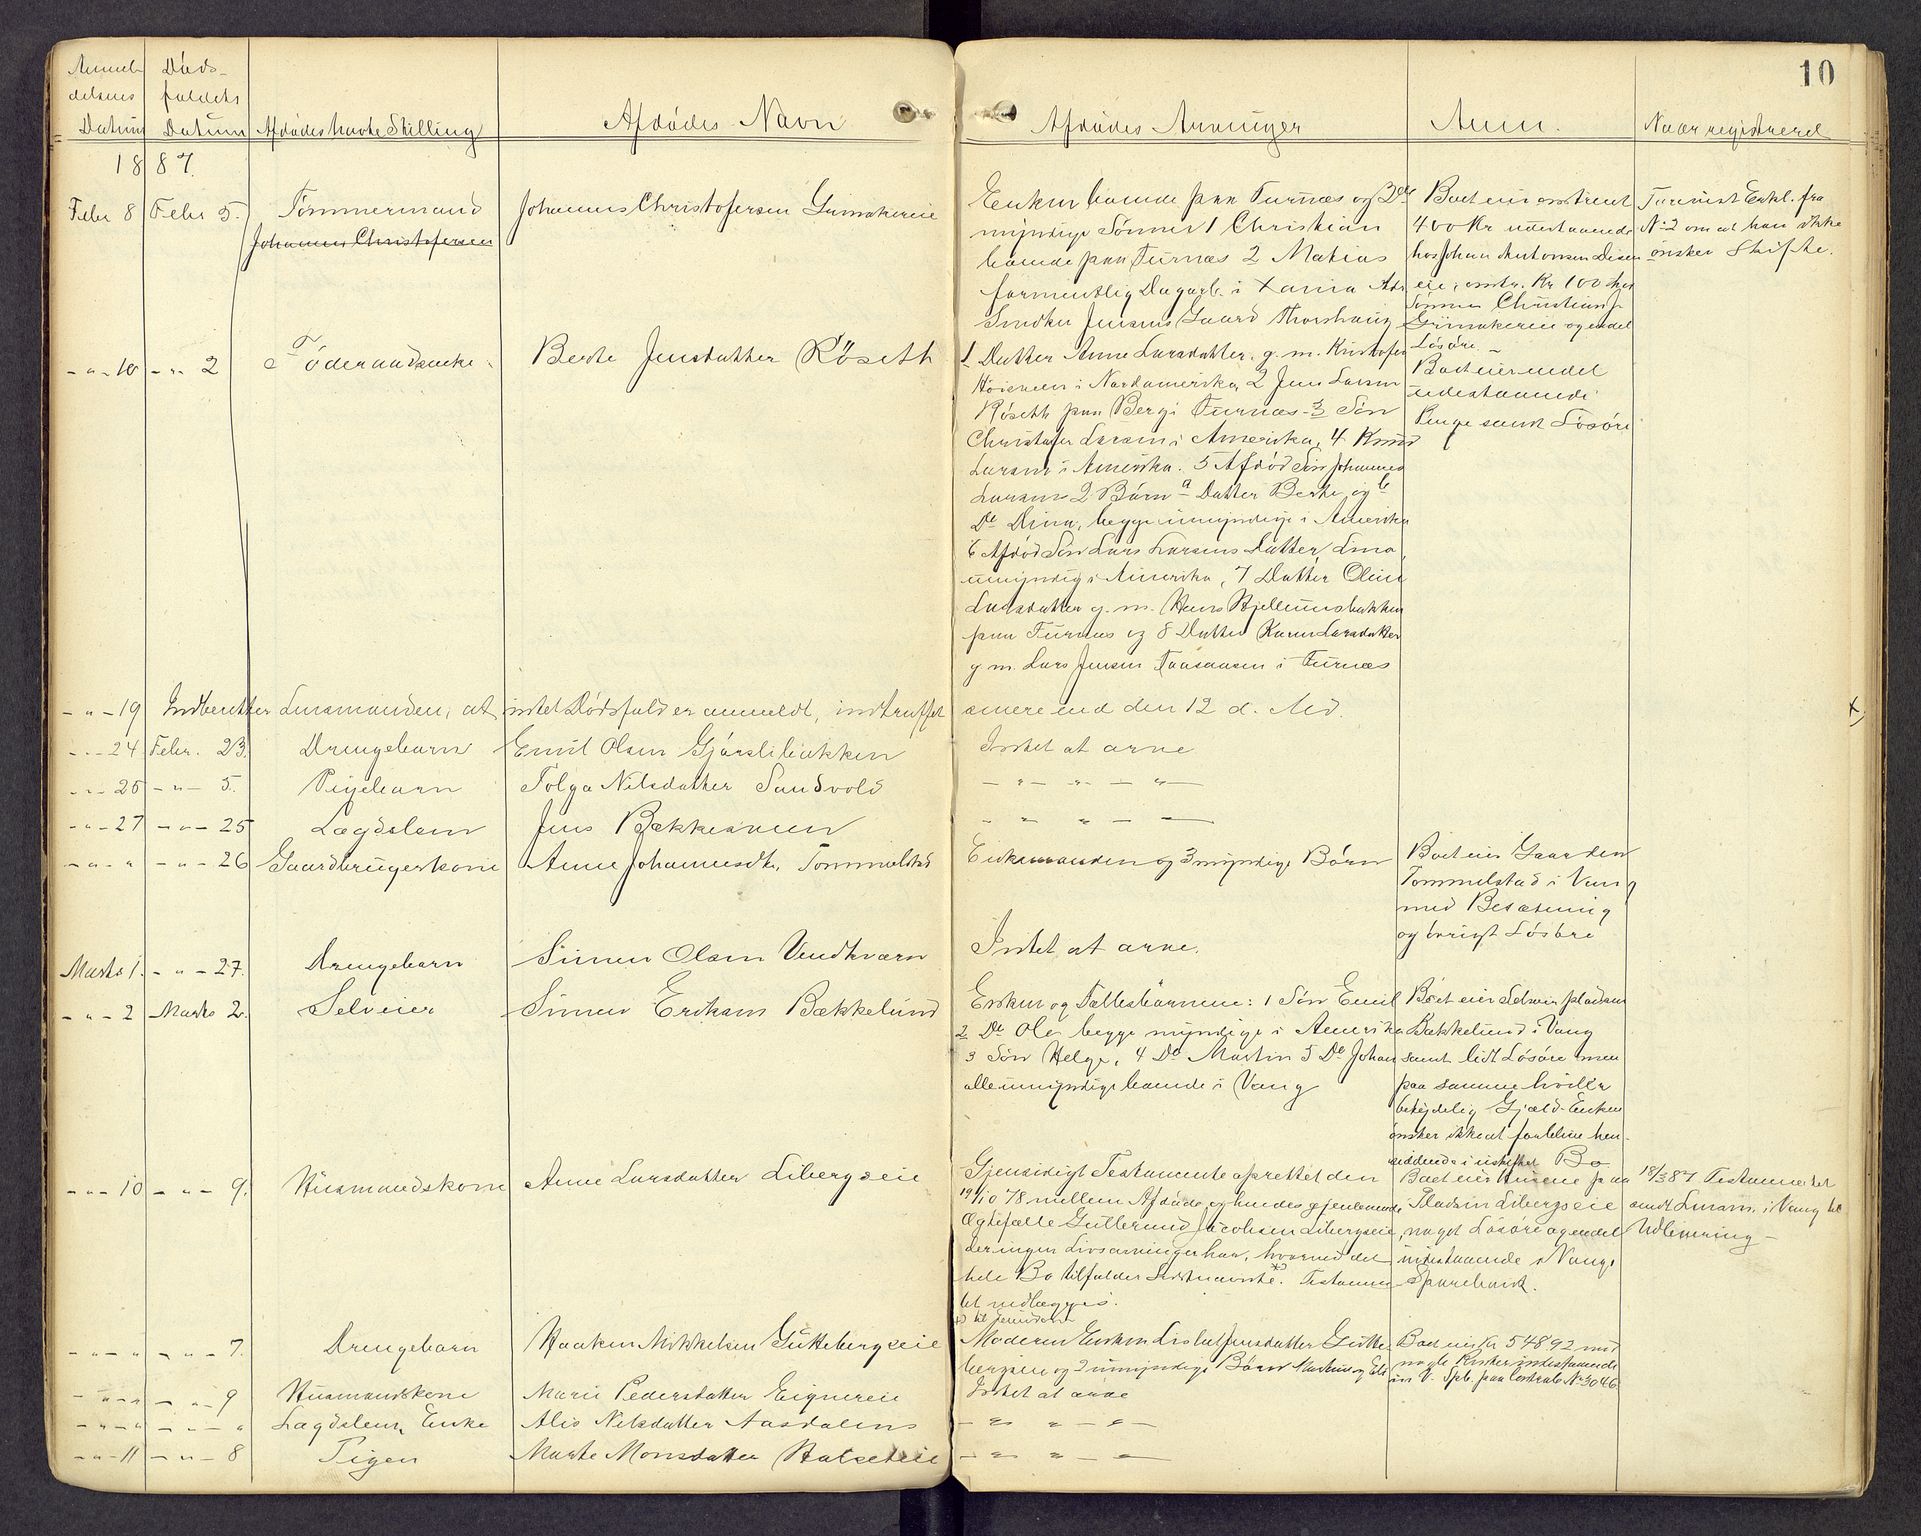 10
Anmel- Døds-
delsens faldets
Datum Datum Afdødes havte Stilling Afdødes Navn Afdødes Arvinger Anm. Naar registreret
1887.
Febr 8 Febr 5. Tømmermand Johannes Christofersen Grimakereie
Johannes Christofersen
Enken boende paa Furnæs og 3de
myndige Sønner 1 Christian
boende paa Furnæs 2 Matias
formentlig Dagarb. i Xania Adr
Snedker Jensens Gaard Thorshaug
Boet eier omtrent
400 Kr udestaaende
hos Johan Antonsen Disen
eie, omtr. Kr 100 hos
Sønnen Christian J.
Grimakereie og endel
Løsøre
Furnæst Erkl. fra
No 2 om at han ikke
ønsker Skifte.
- " - 10 - " - 2 Føderaadsenke Berte Jensdatter Röseth
1 Datter Anne Larsdatter, g. m. Kristofer
i Nordamerika, 2 Jens Larsen
Röseth paa Berg i Furnæs 3 Søn
Christofer Larsen i Amerika, 4 Knud
Larsen i Amerika. 5 Afdød Søn Johannes
Larsens 2 Børn a Datter Berte og b
Do Dina, begge umyndige i Amerika
6 Afdød Søn Lars Larsens Datter Lina
umyndig i Amerika, 7 Datter Oline
Larsdatter g. m. Hans Hjellumsbakken
paa Furnæs og 8 Datter Karen Larsdatter
g. m. Lars Jensen i Furnæs
Boet eier endel
udestaaende
Penge samt Løsøre
- " - 19 Indberetter Lensmanden, at intet Dødsfald er anmeldt, indtruffet senere end den 12 d. Md.
- " - 24 Febr. 23. Drengebarn Emil Olsen Gjørslibakken Intet at arve
- " - 25 - " - 5. Pigebarn Tolga Nilsdatter Sandvold - " - " - " -
- " - 27 - " - 25 Lægdslem Jens Bækkesveen - " - " -
- " - " - " - 26 Gaardbrugerkone Anne Johannesdtr. Tommelstad Enkemanden og 3 myndige Børn
Boet eier Gaarden
Tommelstad i Vang
med Besætning
og øvrigt Løsøre
Marts 1. - " - 27. Drengebarn Simen Olsen Vendkværn Intet at arve.
- " - 2 Marts 2. Selveier Simen Eriksen Bækkelund
Enken og Fællesbørnene: 1 Søn Emil
2 Do Ole begge myndige i Amerika
3 Søn Helge, 4 Do Martin 5 Do Johan
alle umyndige boende i Vang
Boet eier Selveierpladsen
Bækkelund i Vang
samt lidt Løsøre men
paa samme hviler
betydelig Gjæld. Enken
ønsker ikke at forblive hen-
siddende i uskiftet Bo
- " - 10 - " - 9. Husmandskone Anne Larsdatter Libergseie
Gjensidigt Testamente oprettet den
19/10 78 mellem Afdøde og hendes gjenlevende
Ægtefælle Gulbrand Jacobsen Libergseie
der ingen Livsarvinger har, hvorved det
hele Bo tilfalder Sidstnævnte. x) Testamen-
tet vedlægges.
x) til Eiendom
Boet eier Husene paa
Pladsen Libergseie
noget Løsøre og endel
indestaaende i Vangs
Sparebank.
18/3 87 Testamentet
sendt Lensm. i Vang til
Udlevering -
- " - " - " - 7. Drengebarn Haaken Mikkelsen Gutebergseie
Moderen Enken Lisbet Jensdatter Gutte-
bergseie og 2 umyndige Børn
Boet eier Kr 548 92 med
nogle Renter indestaaende
in V. Spb. paa Contrab. No 3046.
- " - " - " - 9 Husmandskone Marie Pedersdatter Eignereie Intet at arve
- " - " - " - " Lægdslem, Enke Alis Nilsdatter Aasdalens - " - " - " -
- " - 11 - " - 8 Pigen Marte Monsdatter Halseteie - " - " - " -
x)